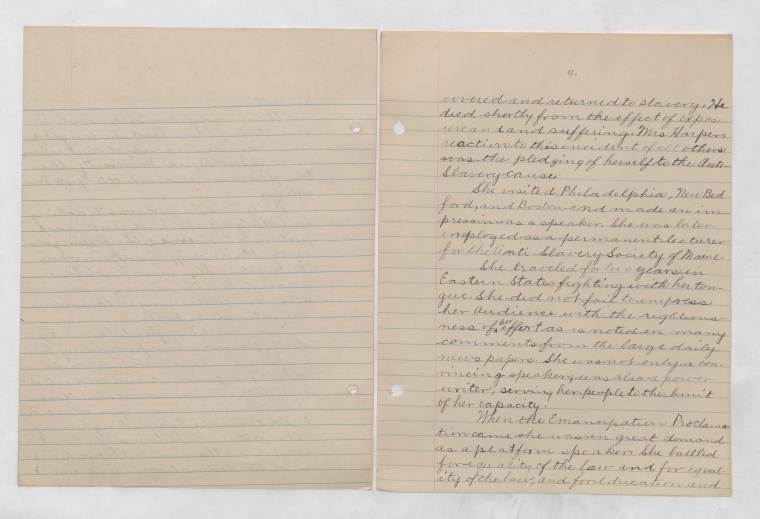 covered and returned to slavery. He
died shortly from the effect of expos
ure and and suffering. Mrs Harpers
reaction to this incident of all others
was the pledging of herself to the Anti
Slavery cause.
She visited Philadelphia, New Bed
ford, and Boston and made an im
pression as a speaker. She was later
employed as a permanent lecturer
for the Anti-Slavery Society of Maine.
She traveled for two years in
Eastern States fighting with her ton-
gue. She did not fail to impress
her Audience with the righteous-
ness of her effort as is noted in many
comments from the large daily
news papers. She was not only a con-
vincing speaker, was also a power
writer, serving her people to the limit
of her capacity.
When the Emancipation Proclama
tion came she was in great demand
as a platform speaker. She battled
for equality of the law and for equal
ity of the law, and for education and